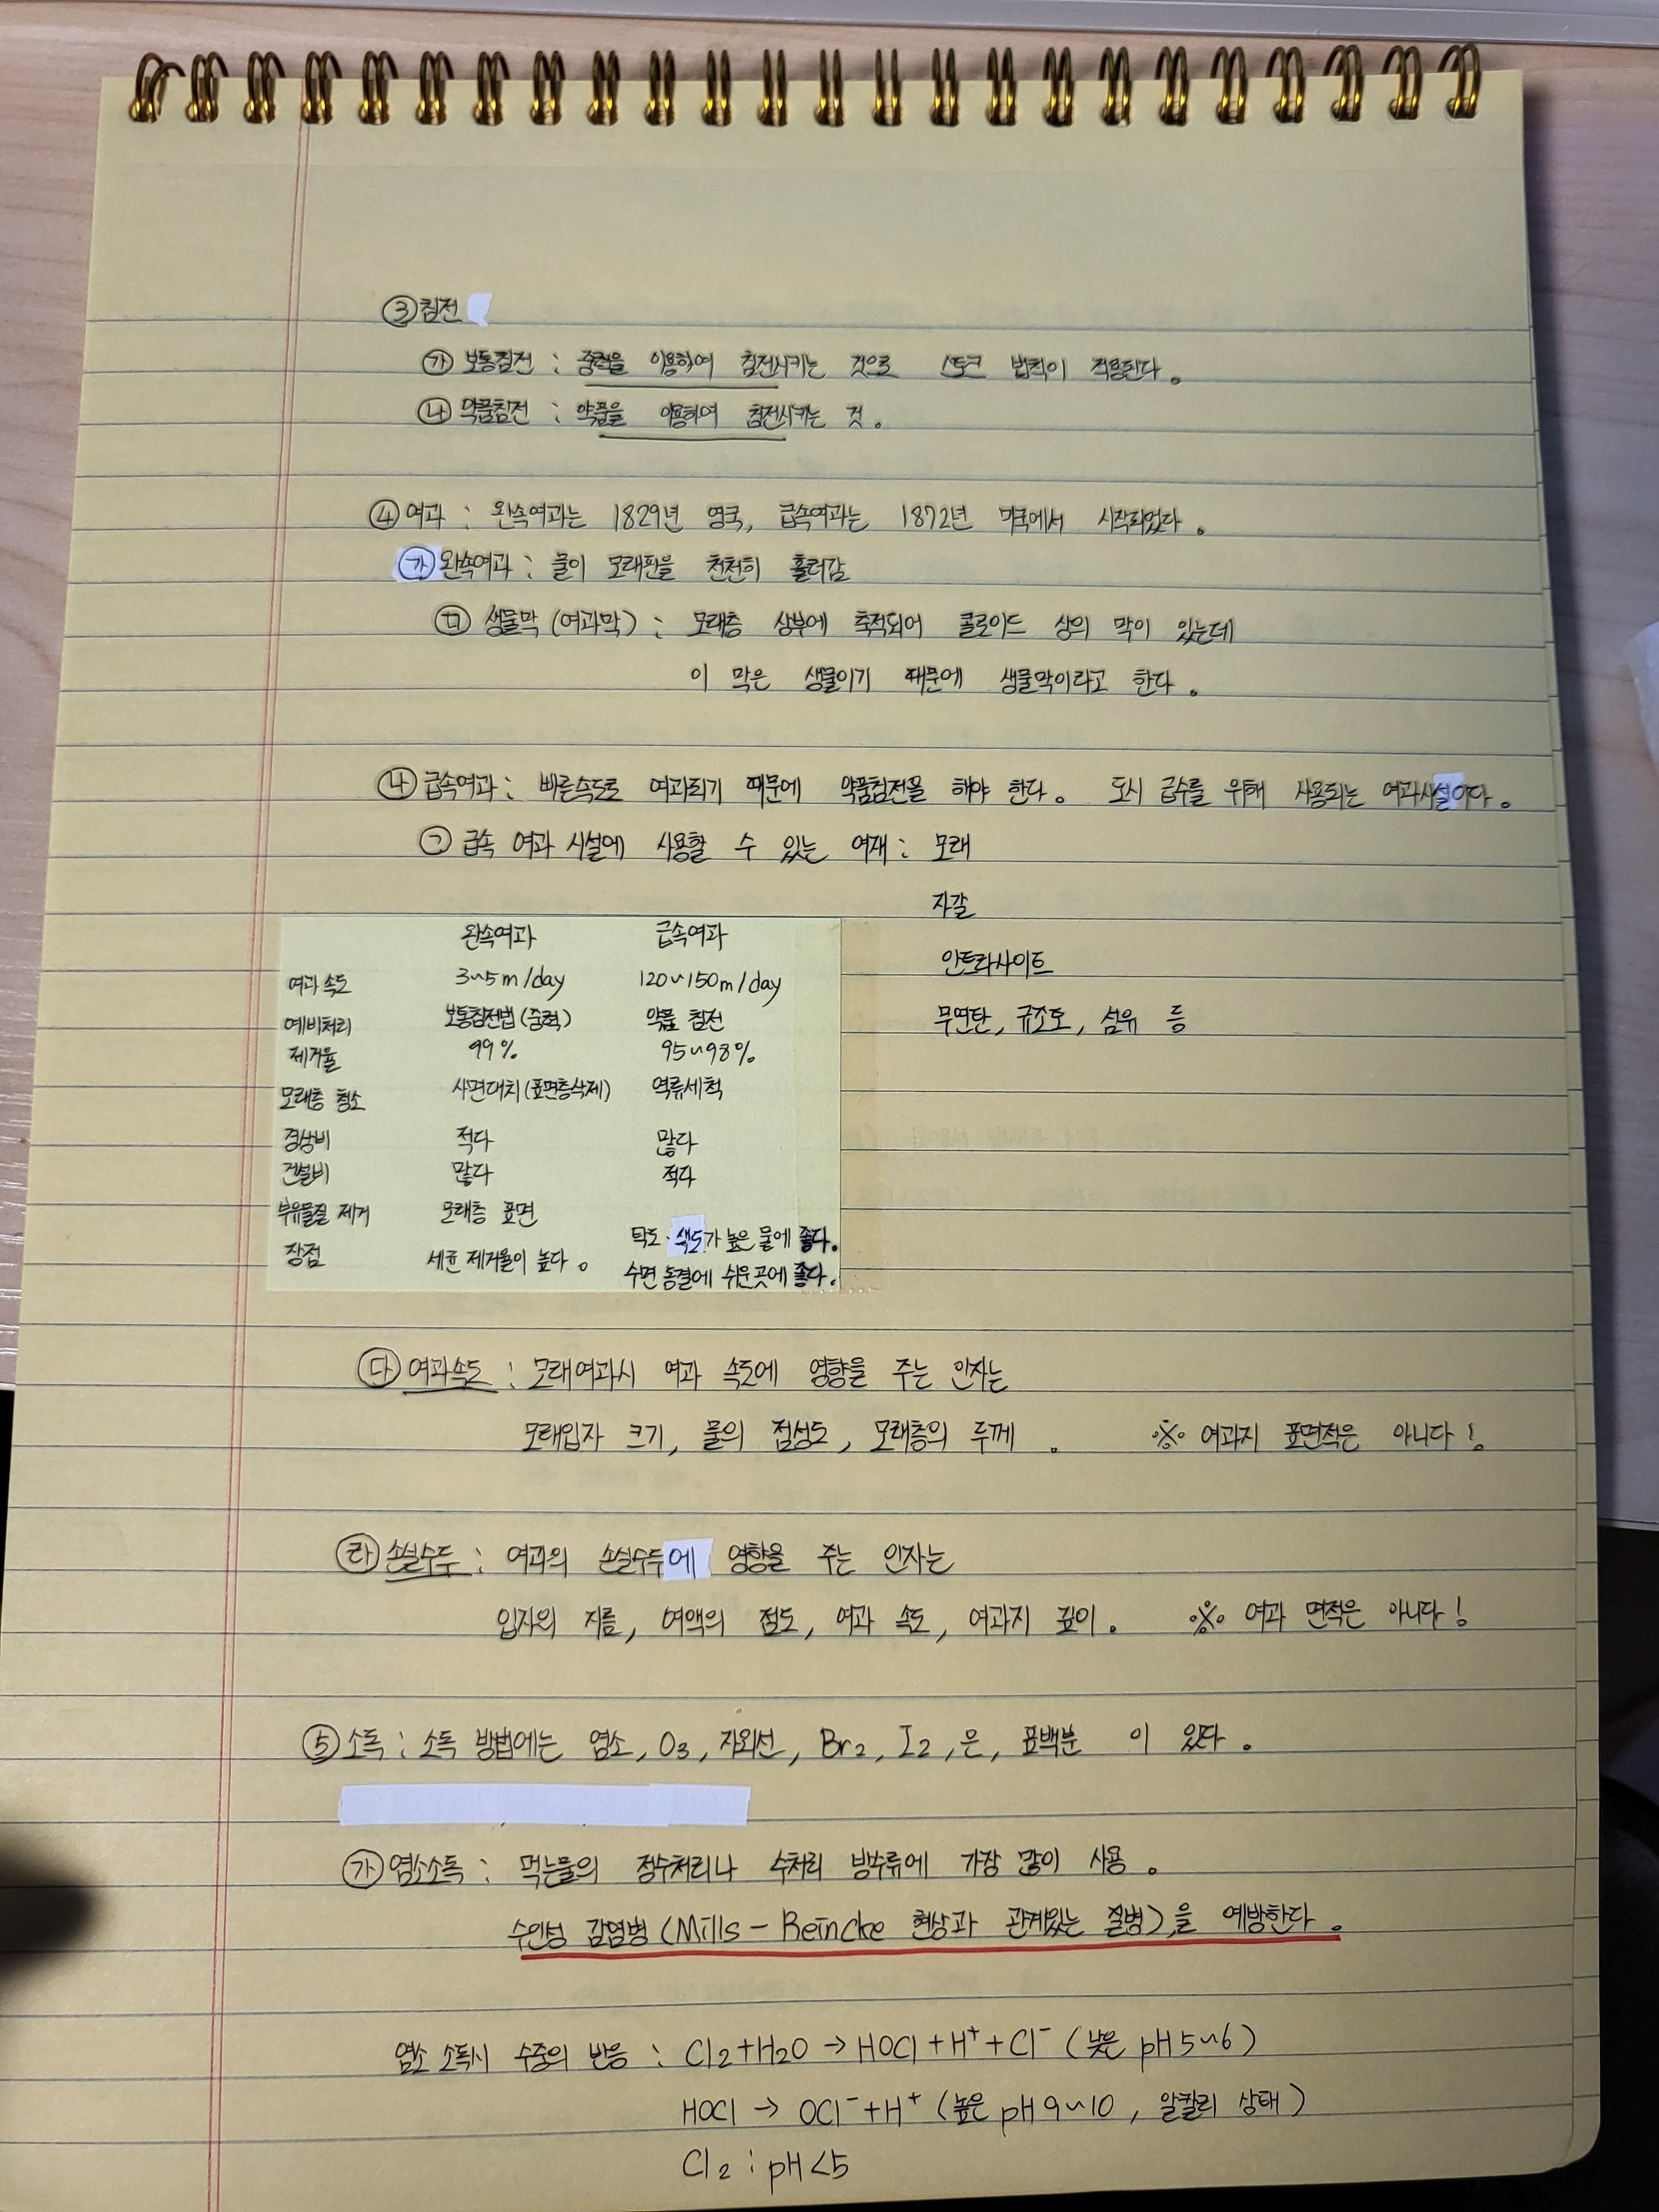 ③ 침전
㉮ 보통침전 : 중력을 이용하여 침전시키는 것으로 스토크 법칙이 적용된다.
㉯ 약품침전 : 약품을 이용하여 침전시키는 것.
④ 여과 : 완속여과는 1829년 영국, 급속여과는 1872년 미국에서 시작되었다.
㉮ 완속여과 : 물이 모래판을 천천히 흘러감
㉠ 생물막 (여과막) : 모래층 상부에 축적되어 콜로이드 상의 막이 있는데
이 막은 생물이기 때문에 생물막이라고 한다.
㉯ 급속여과 : 빠른속도로 여과되기 때문에 약품침전을 해야 한다. 도시 급수를 위해 사용되는 여과시설이다.
㉠ 급속 여과 시설에 사용할 수 있는 여재 : 모래
자갈
안트라사이트
무연탄, 규조토, 섬유 등
완속여과 급속여과
여과 속도 3~5m/day 120~150m/day
예비처리 보통침전법 (중력) 약품 침전
제거율 99% 95~98%
모래층 청소 사면대치 (표면층삭제) 역류세척
경상비 적다 많다
건설비 많다 적다
부유물질 제거 모래층 표면
장점 세균 제거율이 높다. 탁도·색도가 높은 물에 좋다.
수면 동결에 쉬운곳에 좋다.
㉰ 여과속도 : 모래여과시 여과 속도에 영향을 주는 인자는
모래입자 크기, 물의 점성도, 모래층의 두께. ※ 여과지 표면적은 아니다!
㉱ 손실수두 : 여과의 손실수두에 영향을 주는 인자는
입자의 지름, 여액의 점도, 여과 속도, 여과지 깊이. ※ 여과 면적은 아니다!
⑤ 소독 : 소독 방법에는 염소, O₃, 자외선, Br₂, I₂, 은, 표백분 이 있다.
㉮ 염소소독 : 먹는물의 정수처리나 수처리 방수류에 가장 많이 사용.
수인성 감염병 (Mills-Reincke 현상과 관계있는 질병)을 예방한다.
염소 소독시 수중의 반응 : Cl₂+H₂O → HOCl+H⁺+Cl⁻ (낮은 pH 5~6)
HOCl → OCl⁻+H⁺ (높은 pH 9~10, 알칼리 상태)
Cl₂ : pH<5